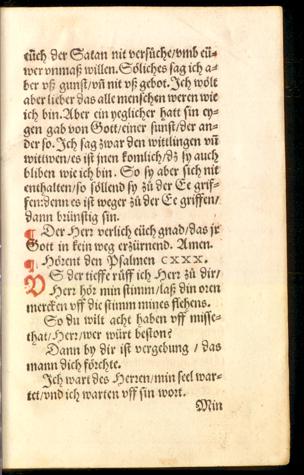 eüch der Satan nit versůche/vmb eü-
wer vnmaß willen. Söliches sag ich a-
ber vß gunst/vñ nit vß gebot. Ich wölt
aber lieber das alle menschen weren wie
ich bin. Aber ein yeglicher hatt sin ey-
gen gab von Gott/einer sunst/der an-
der so. Ich sag zwar den wittlingen vñ
witwen/es ist jnen komlich/dz sy auch
bliben wie ich bin. So sy aber sich nit
enthalten/so söllend sy zů der Ee grif-
fen:denn es ist weger zů der Ee griffen/
dann brünstig sin.
¶ Der Herr verlich eüch gnad/das jr
Gott in kein weg erzürnend. Amen.
¶ Hörent den Psalmen CXXX.
VS der tieffe rüff ich Herr zů dir/
Herr hör min stimm/laß din oren
mercken vff die stimm mines flehens.
So du wilt acht haben vff misse-
that/Herr/wer würt beston?
Dann by dir ist vergebung / das
mann dich förchte.
Ich wart des Herren/min seel war-
tet/vnd ich warten vff sin wort.
Min